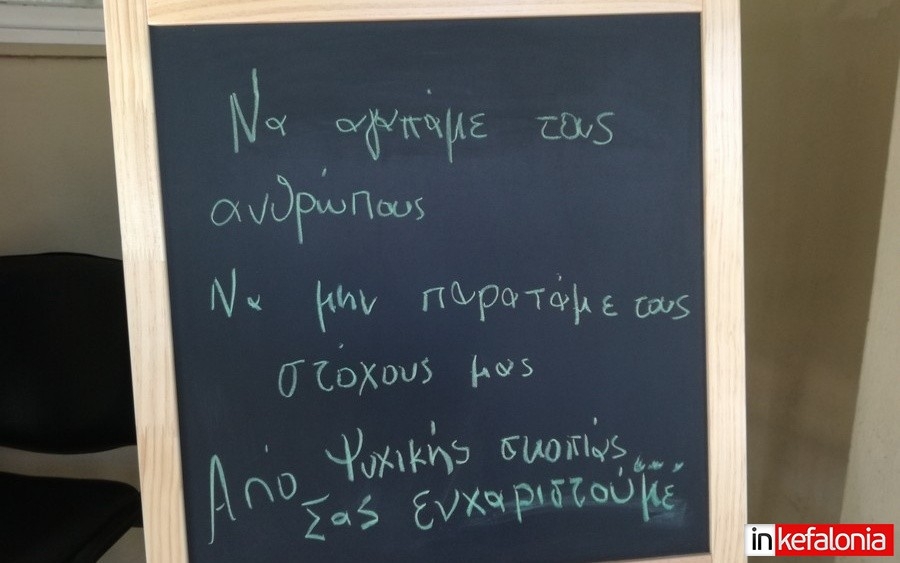 Να αγαπάμε τους
ανθρώπους
Να μην παρατάμε τους
στόχους μας
Από ψυχικής σκοπιάς
Σας ευχαριστούμε
inkefalonia